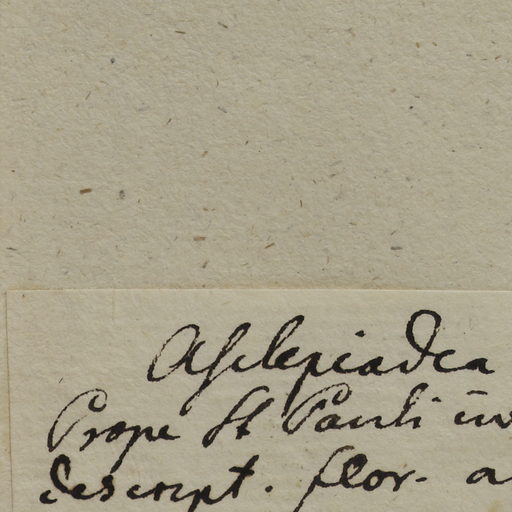 Asclepiadea
Prope St Pauli
descript. flor.